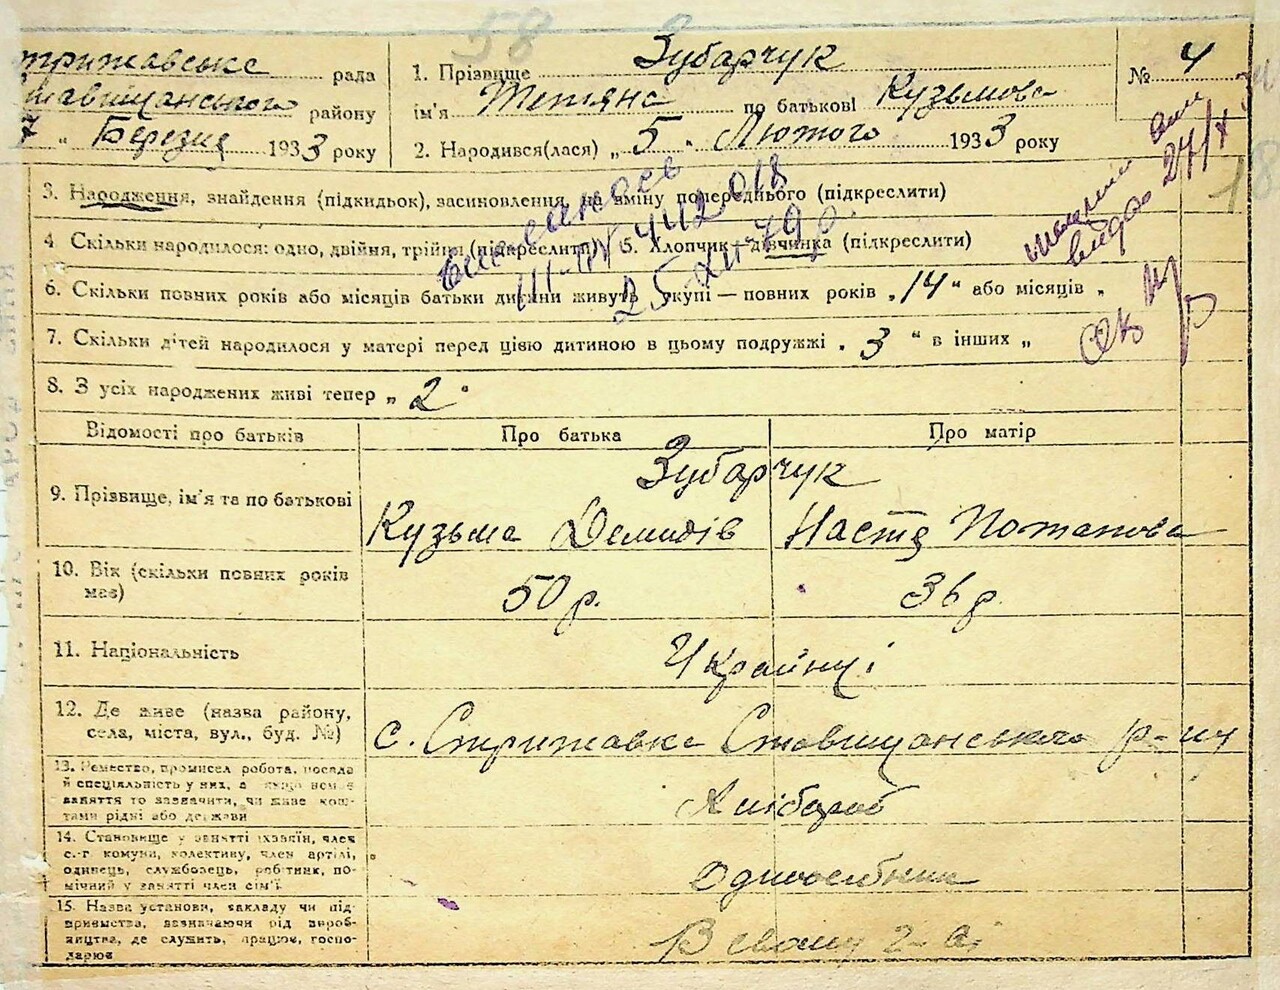 58
Стрижавське рада
Ставищанського району
7 " Березня 1933 року
1. Прізвище Зубарчук
ім'я Тетяна по батькові Кузьмова
2. Народився(лася) „ 5 " Лютого 1933 року
№ 4
18
3. Народження, знайдення (підкидьок), засиновлення, на зміну попереднього (підкреслити)
4. Скільки народилося: одно, двійня, трійня (підкреслити) 5. Хлопчик—дівчинка (підкреслити)
III-БК 442018
25 XII-79 р.
видано 27/X
6. Скільки повних років або місяців батьки дитини живуть укупі—повних років „ 14 " або місяців „
7. Скільки дітей народилося у матері перед цією дитиною в цьому подружжі „ 3 " в інших „
8. З усіх народжених живі тепер „ 2 "
Відомості про батьків Про батька Про матір
9. Прізвище, ім'я та по батькові
Зубарчук
Кузьма Демидів Настя Потапова
10. Вік (скільки повних років має)
50 р. 36 р.
11. Національність Українці
12. Де живе (назва району, села, міста, вул., буд. №)
с. Стрижавка Ставищанського р-ну
13. Ремество, промисел робота, посада
й спеціальність у них, а якщо немає
заняття то зазначити, чи живе кош-
тами рідні або держави
Хлібороб
14. Становище у занятті (хазяїн, член
с.-г комуни, колективу, член артілі,
одинець, службовець, робітник, по-
мічний у занятті член сім'ї
Одноосібник
15. Назва установи, закладу чи під-
приємства, зазначаючи рід вироб-
ництва, де служить, працює, госпо-
дарює
В свому г-ві